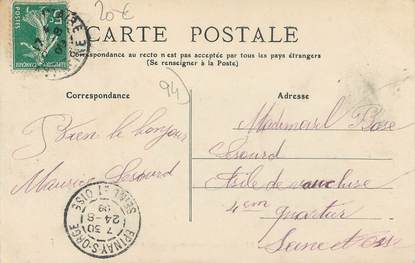 20€
CARTE POSTALE
La Correspondance au recto n'est pas acceptée par tous les pays étrangers
(Se renseigner à la Poste)
94
Correspondance
Adresse
Bien le bonjour
Maurice Lesourd
Mademoisel Rose
Lesourd
Asile de vaucluse
4em quartier
Seine et oise
EPINAY-S-ORGE
7 30
24-8
09
SEINE ET OISE